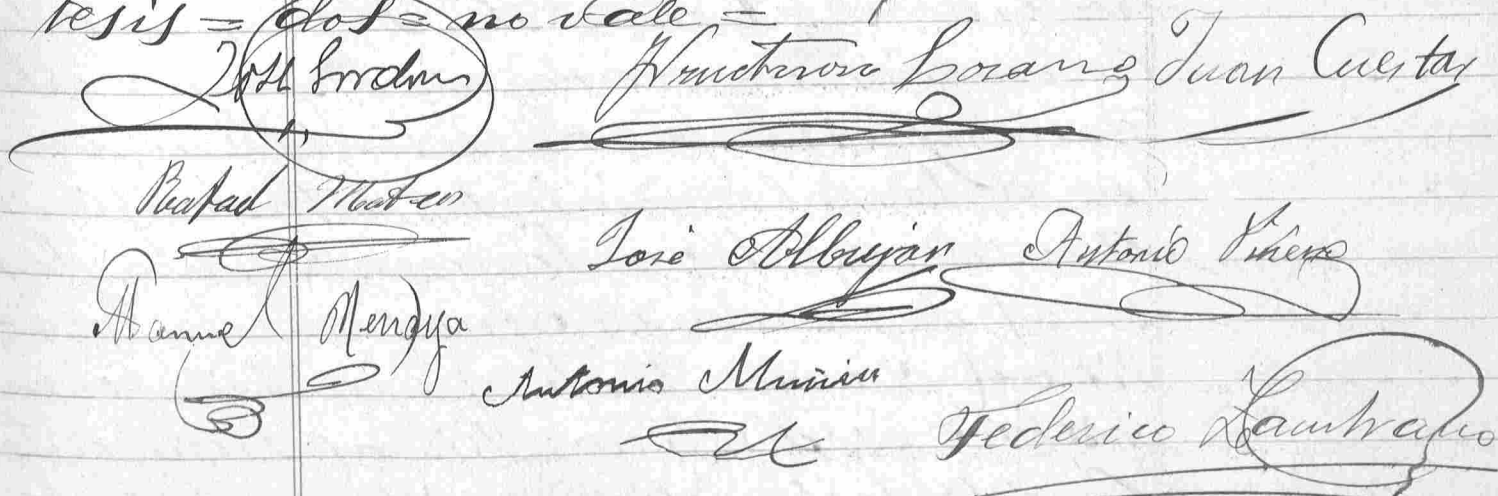 tesis = dos = no vale =
José Fructuoso Lozano Juan Cuestas
Rafael Mateos
José Albuján Antonio Viñero
Manuel Mendya
Antonio Muñiz
Federico Zambrano